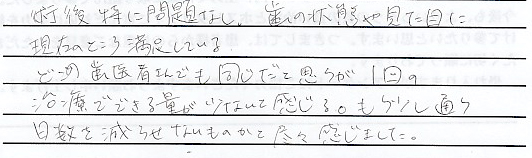 術後特に問題なし。歯の状態や見た目に
現在のところ満足している。
どこの歯医者さんでも同じだと思うが1回の
治療でできる量が少ないと感じる。もう少し通う
日数を減らせないものかと度々感じました。